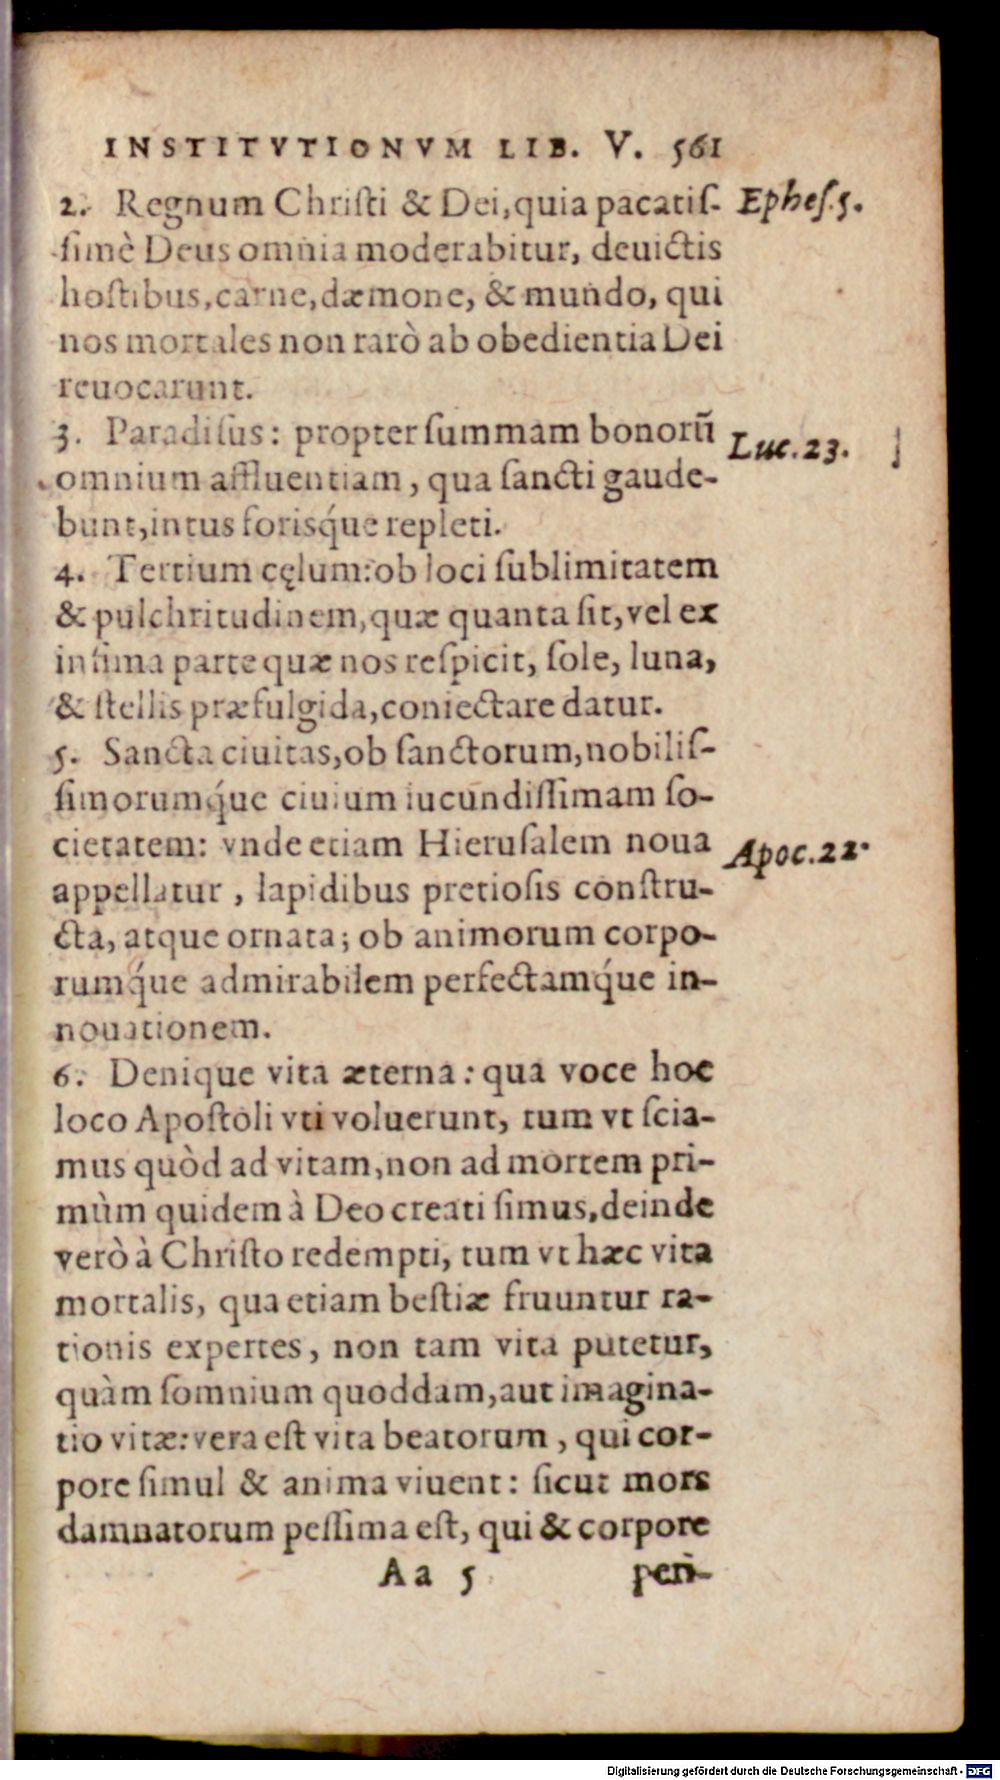 INSTITVTIONVM LIB. V. 561
2. Regnum Christi & Dei, quia pacatiſ- Ephes.5.
ſimè Deus omnia moderabitur, deuictis
hoſtibus, carne, dæmone, & mundo, qui
nos mortales non rarò ab obedientia Dei
reuocarunt.
3. Paradiſus: propter ſummam bonorū Luc.23.
omnium affluentiam, qua ſancti gaude-
bunt, intus foriſq́ue repleti.
4. Tertium cęlum: ob loci ſublimitatem
& pulchritudinem, quæ quanta ſit, vel ex
infima parte quæ nos reſpicit, ſole, luna,
& ſtellis præfulgida, coniectare datur.
5. Sancta ciuitas, ob ſanctorum, nobiliſ-
ſimorumq́ue ciuium iucundiſſimam ſo-
cietatem: vnde etiam Hieruſalem noua Apoc.22.
appellatur, lapidibus pretioſis conſtru-
cta, atque ornata; ob animorum corpo-
rumq́ue admirabilem perfectamq́ue in-
nouationem.
6. Denique vita æterna: qua voce hoc
loco Apoſtoli vti voluerunt, tum vt ſcia-
mus quòd ad vitam, non ad mortem pri-
mùm quidem à Deo creati ſimus, deinde
verò à Chriſto redempti, tum vt hæc vita
mortalis, qua etiam beſtiæ fruuntur ra-
tionis expertes, non tam vita putetur,
quàm ſomnium quoddam, aut imagina-
tio vitæ: vera eſt vita beatorum, qui cor-
pore ſimul & anima viuent: ſicut mors
damnatorum peſſima eſt, qui & corpore
Aa 5 peri-
Digitalisierung gefördert durch die Deutsche Forschungsgemeinschaft - DFG